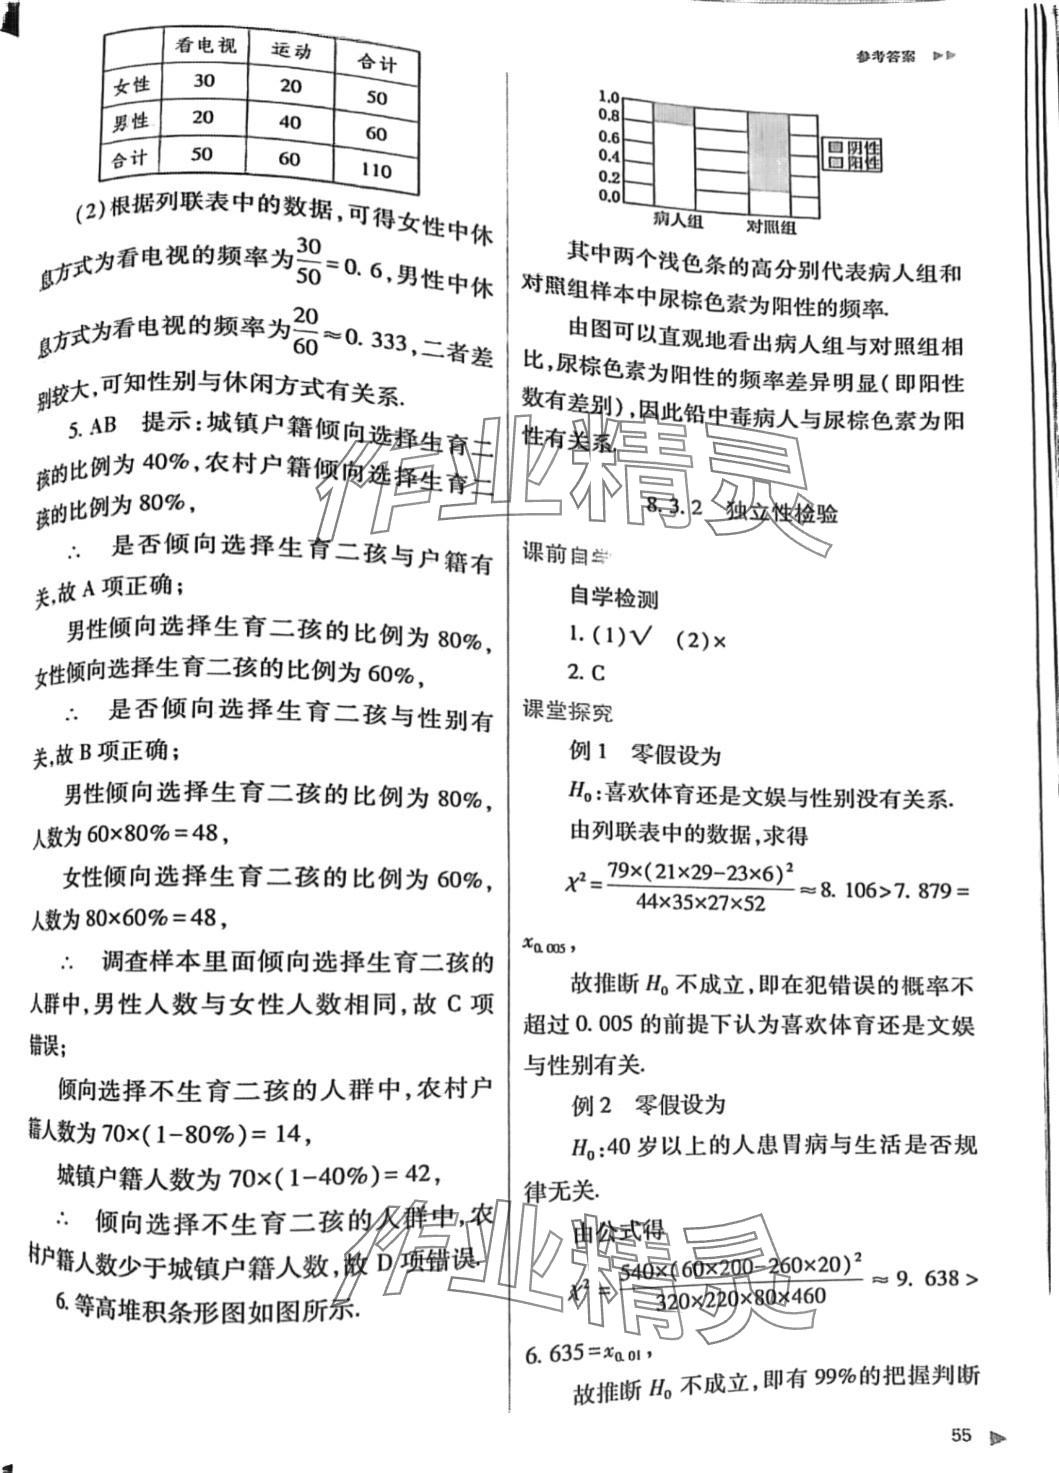 参考答案
看电视 运动 合计
女性 30 20 50
男性 20 40 60
合计 50 60 110
(2)根据列联表中的数据,可得女性中休
息方式为看电视的频率为30/50=0.6,男性中休
息方式为看电视的频率为20/60≈0.333,二者差
别较大,可知性别与休闲方式有关系.
5. AB 提示:城镇户籍倾向选择生育二
孩的比例为40%,农村户籍倾向选择生育二
孩的比例为80%,
∴ 是否倾向选择生育二孩与户籍有
关,故A项正确;
男性倾向选择生育二孩的比例为80%,
女性倾向选择生育二孩的比例为60%,
∴ 是否倾向选择生育二孩与性别有
关,故B项正确;
男性倾向选择生育二孩的比例为80%,
人数为60×80%=48,
女性倾向选择生育二孩的比例为60%,
人数为80×60%=48,
∴ 调查样本里面倾向选择生育二孩的
人群中,男性人数与女性人数相同,故C项
错误;
倾向选择不生育二孩的人群中,农村户
籍人数为70×(1-80%)=14,
城镇户籍人数为70×(1-40%)=42,
∴ 倾向选择不生育二孩的人群中,农
村户籍人数少于城镇户籍人数,故D项错误.
6.等高堆积条形图如图所示.
1.0
0.8
0.6
0.4
0.2
0.0
病人组 对照组
阴性
阳性
其中两个浅色条的高分别代表病人组和
对照组样本中尿棕色素为阳性的频率.
由图可以直观地看出病人组与对照组相
比,尿棕色素为阳性的频率差异明显(即阳性
数有差别),因此铅中毒病人与尿棕色素为阳
性有关系.
8.3.2 独立性检验
课前自学
自学检测
1.(1)√ (2)×
2. C
课堂探究
例1 零假设为
H₀:喜欢体育还是文娱与性别没有关系.
由列联表中的数据,求得
χ²=79×(21×29-23×6)²/44×35×27×52≈8.106>7.879=
x₀.₀₀₅,
故推断H₀不成立,即在犯错误的概率不
超过0.005的前提下认为喜欢体育还是文娱
与性别有关.
例2 零假设为
H₀:40岁以上的人患胃病与生活是否规
律无关.
由公式得
χ²=540×(60×200-260×20)²/320×220×80×460≈9.638>
6.635=x₀.₀₁,
故推断H₀不成立,即有99%的把握判断
55
作业精灵
作业精灵